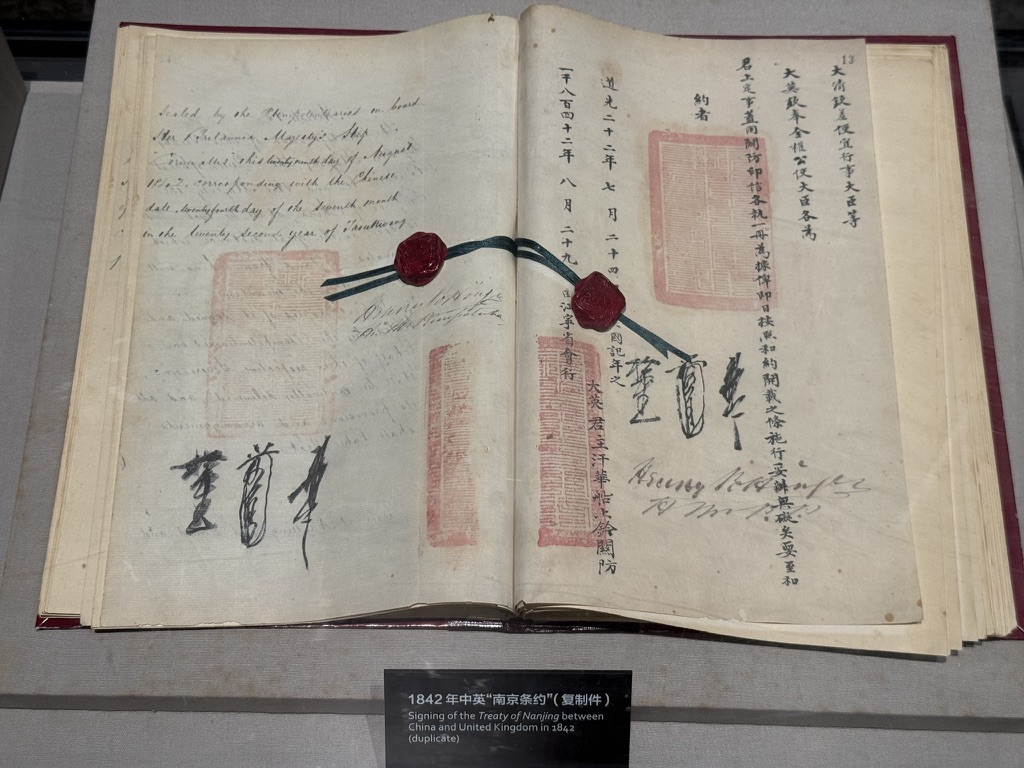 Sealed by the Plenipotentiaries on board
Her Britannic Majesty's Ship
Cornwallis this twenty ninth day of August
1842, corresponding with the Chinese
date, twenty fourth day of the seventh month
in the twenty second year of Taoukwang
Henry Pottinger
13
大清欽差便宜行事大臣等
大英欽奉全權公使大臣各為
君上定事蓋用關防印信各執一冊為據俾即日按照和約開載之條施行妥辦無礙矣要至和
約者
道光二十二年七月二十四
國記年之
一千八百四十二年八月二十九
由江寧省會行
大英君主汗華船上鈐關防
Henry Pottinger
1842 年中英“南京条约”( 复制件 )
Signing of the Treaty of Nanjing between
China and United Kingdom in 1842
(duplicate)